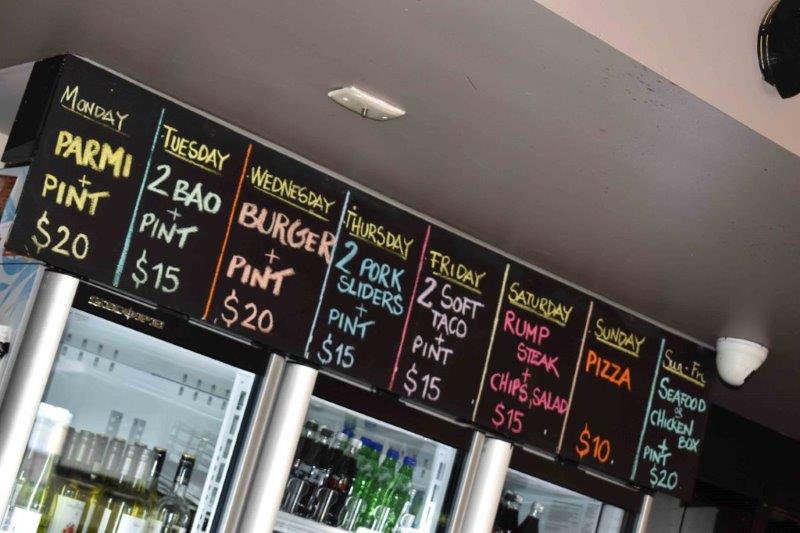 MONDAY
PARMI
+
PINT
$20
TUESDAY
2 BAO
+
PINT
$15
WEDNESDAY
BURGER
+
PINT
$20
THURSDAY
2 PORK
SLIDERS
+
PINT
$15
FRIDAY
2 SOFT
TACO
+
PINT
$15
SATURDAY
RUMP
STEAK
+
CHIPS, SALAD
$15
SUNDAY
PIZZA
$10.
SUN - FRI
SEAFOOD
or
CHICKEN
BOX
+
PINT
$20